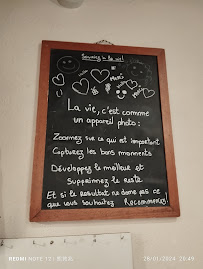 Souriez à la vie!
Merci
La vie, c'est comme
un appareil photo:
Zoomez sur ce qui est important
Capturez les bons moments
Développez le meilleur et
Supprimez le reste
Et si le resultat ne donne pas ce
que vous souhaitez Recommencez!
REDMI NOTE 13 |
20/01/2024 20:49